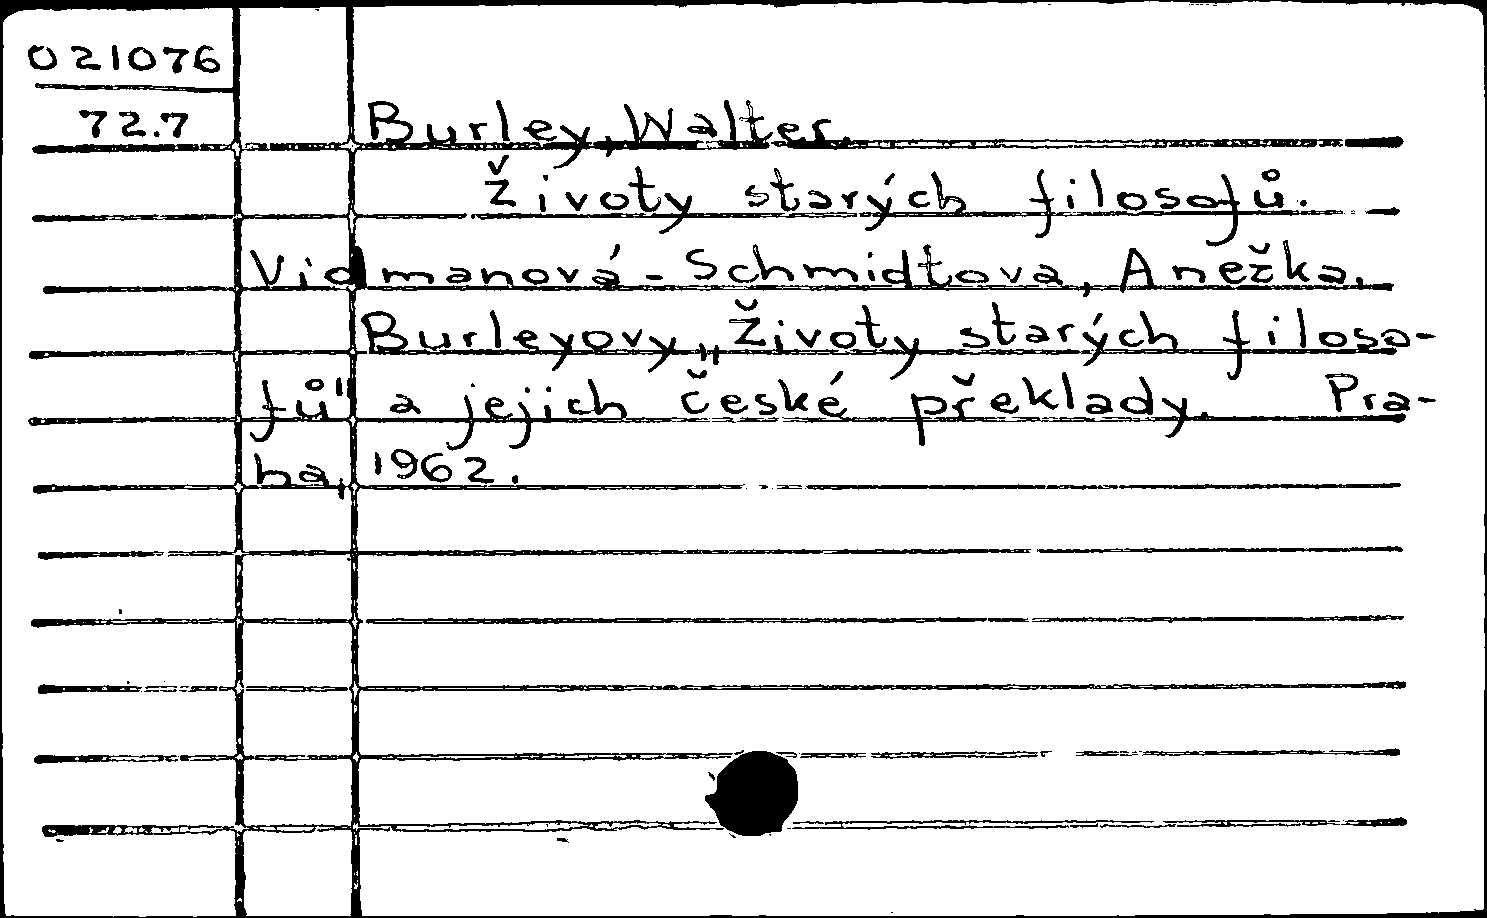 021076
72.7
Burley, Walter.
Životy starých filosofů.
Vidmanová-Schmidtova, Anežka.
Burleyovy „Životy starých filoso-
fů" a jejich české překlady. Pra-
ha, 1962.